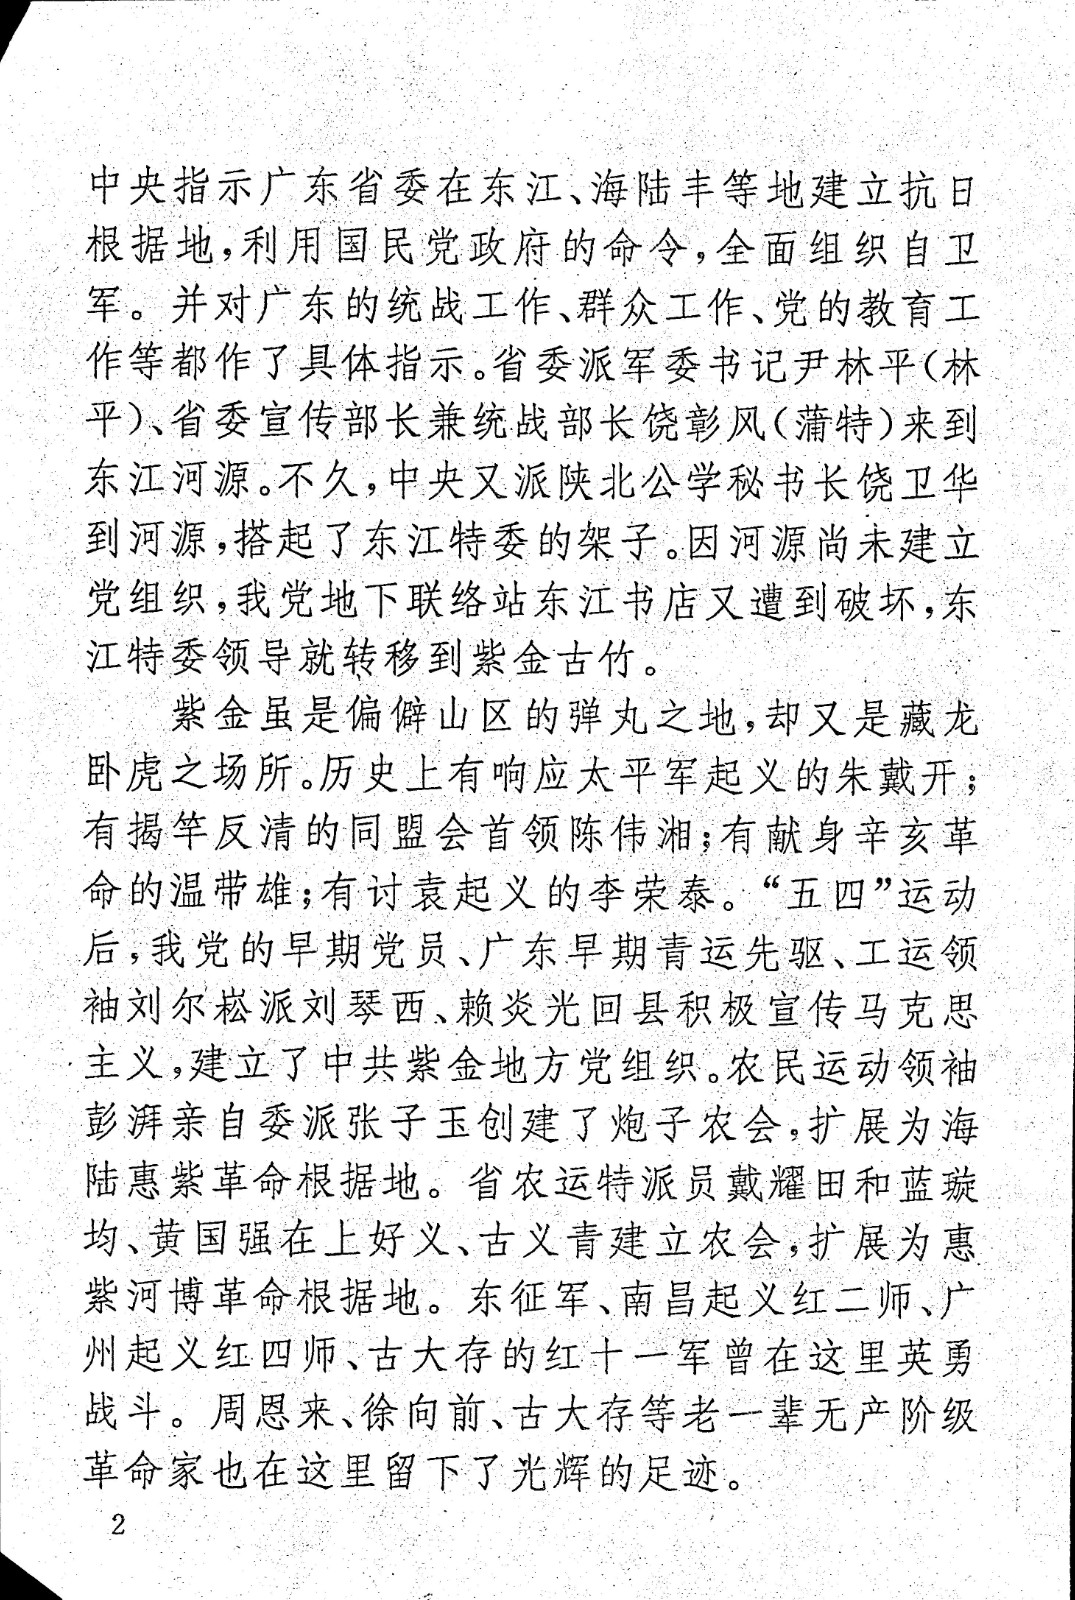 中央指示广东省委在东江、海陆丰等地建立抗日
根据地，利用国民党政府的命令，全面组织自卫
军。并对广东的统战工作、群众工作、党的教育工
作等都作了具体指示。省委派军委书记尹林平（林
平）、省委宣传部长兼统战部长饶彰风（蒲特）来到
东江河源。不久，中央又派陕北公学秘书长饶卫华
到河源，搭起了东江特委的架子。因河源尚未建立
党组织，我党地下联络站东江书店又遭到破坏，东
江特委领导就转移到紫金古竹。
紫金虽是偏僻山区的弹丸之地，却又是藏龙
卧虎之场所。历史上有响应太平军起义的朱戴开；
有揭竿反清的同盟会首领陈伟湘；有献身辛亥革
命的温带雄；有讨袁起义的李荣泰。“五四”运动
后，我党的早期党员、广东早期青运先驱、工运领
袖刘尔崧派刘琴西、赖炎光回县积极宣传马克思
主义，建立了中共紫金地方党组织。农民运动领袖
彭湃亲自委派张子玉创建了炮子农会，扩展为海
陆惠紫革命根据地。省农运特派员戴耀田和蓝璇
均、黄国强在上好义、古义青建立农会，扩展为惠
紫河博革命根据地。东征军、南昌起义红二师、广
州起义红四师、古大存的红十一军曾在这里英勇
战斗。周恩来、徐向前、古大存等老一辈无产阶级
革命家也在这里留下了光辉的足迹。
2